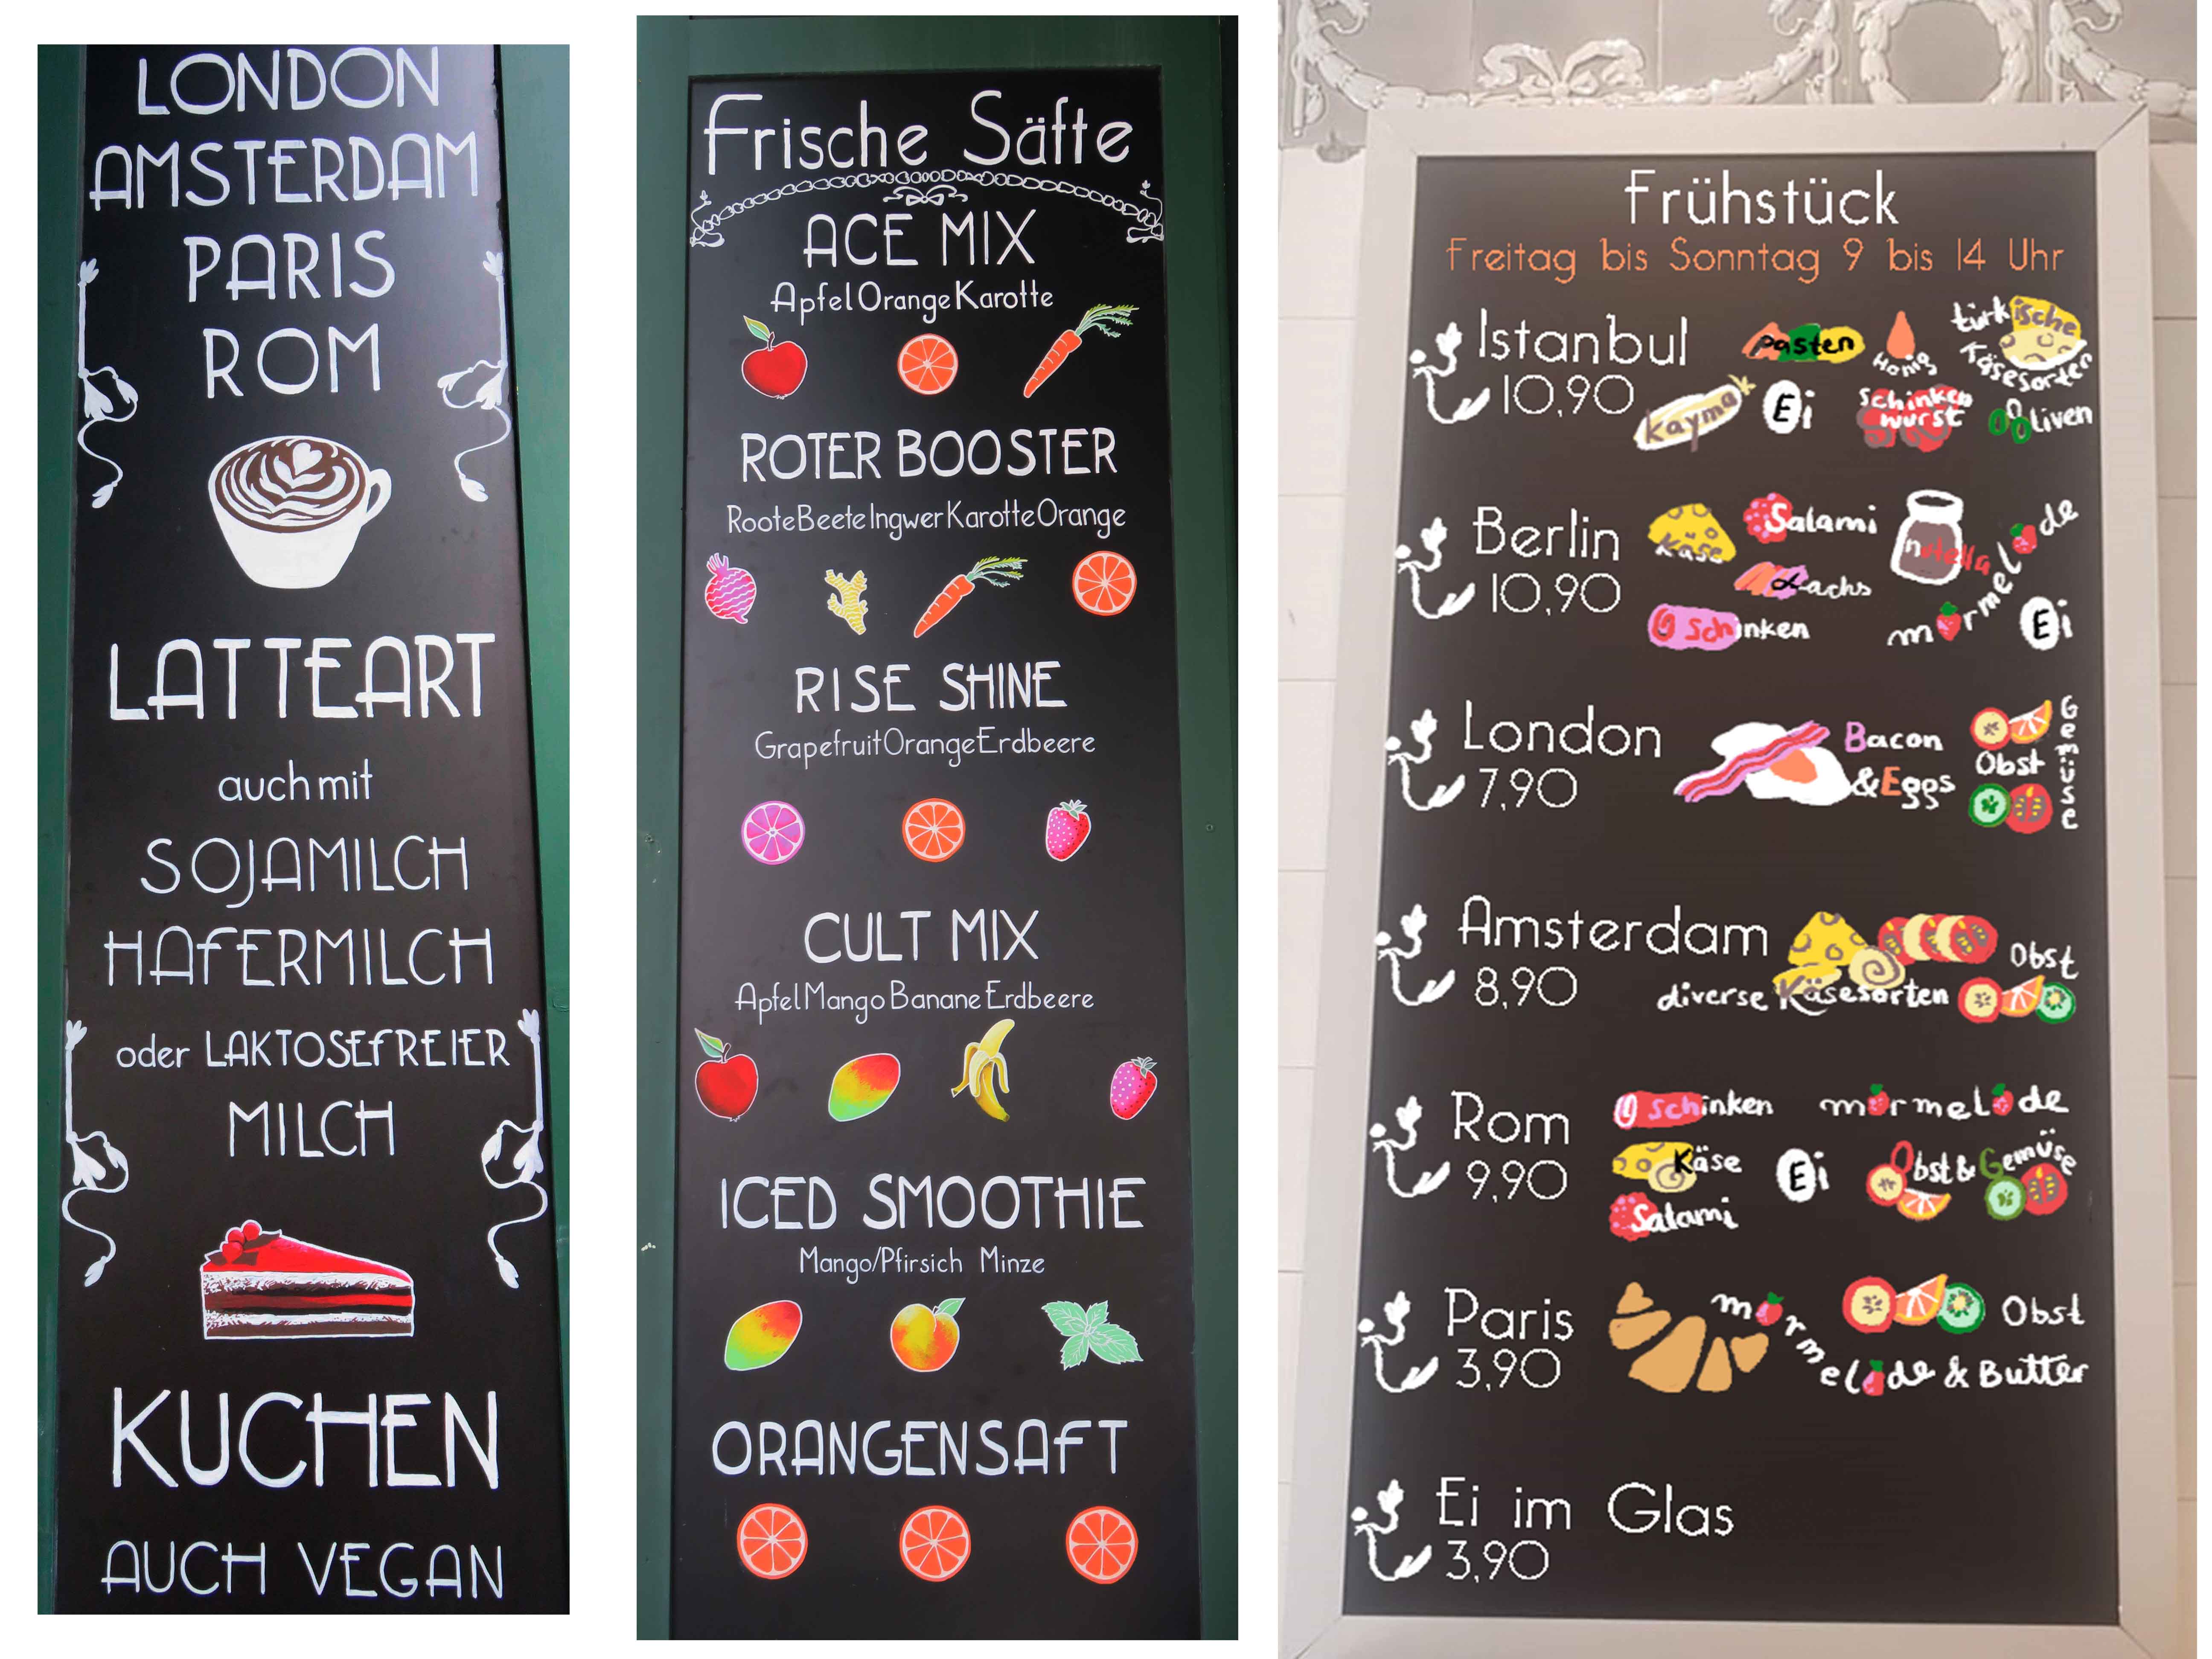 LONDON
AMSTERDAM
PARIS
ROM
LATTEART
auch mit
SOJAMILCH
HAFERMILCH
oder LAKTOSEFREIER
MILCH
KUCHEN
AUCH VEGAN
Frische Säfte
ACE MIX
Apfel Orange Karotte
ROTER BOOSTER
Roote Beete Ingwer Karotte Orange
RISE SHINE
Grapefruit Orange Erdbeere
CULT MIX
Apfel Mango Banane Erdbeere
ICED SMOOTHIE
Mango/Pfirsich Minze
ORANGENSAFT
Frühstück
Freitag bis Sonntag 9 bis 14 Uhr
Istanbul
10,90
pasten
Honig
türkische
Käsesorten
kaymak
Ei
Schinken
wurst
Oliven
Berlin
10,90
Käse
Salami
nutella
marmelade
Lachs
Schinken
Ei
London
7,90
Bacon
& Eggs
Obst
Gemüse
Amsterdam
8,90
diverse Käsesorten
Obst
Rom
9,90
Schinken
marmelade
Käse
Ei
Obst & Gemüse
Salami
Paris
3,90
marmelade & Butter
Obst
Ei im Glas
3,90